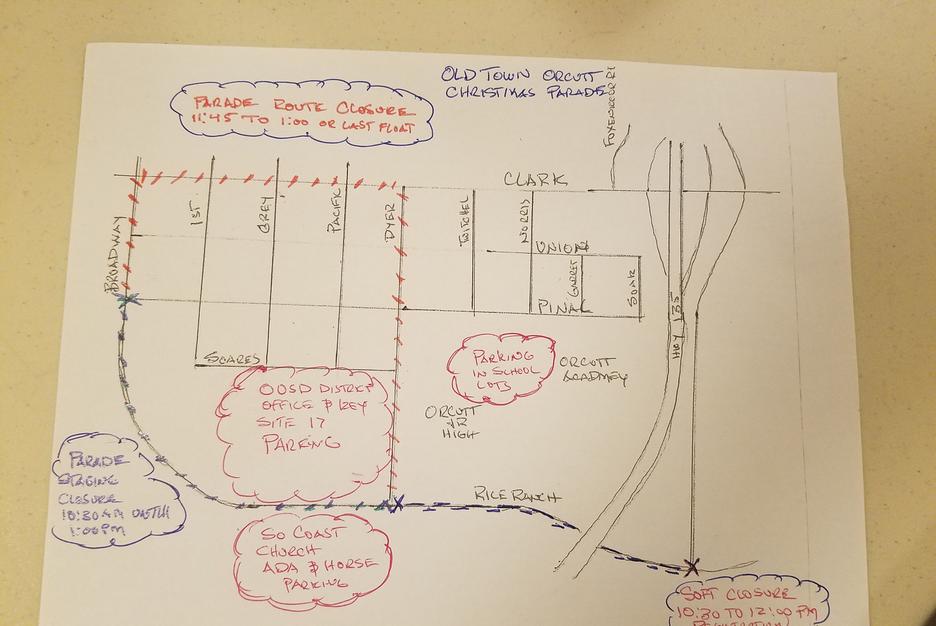 OLD TOWN ORCUTT
CHRISTMAS PARADE
PARADE ROUTE CLOSURE
11:45 TO 1:00 OR LAST FLOAT
CLARK
BROADWAY
1ST
GREY
PACIFIC
DYER
TWITCHEL
NORRIS
UNION
GARRET
SOAR
PINAL
HWY 135
SOARES
PARKING
IN SCHOOL
LOTS
ORCUTT
ACADMEY
OUSD DISTRICT
OFFICE & KEY
SITE 17
PARKING
ORCUTT
JR
HIGH
PARADE
STAGING
CLOSURE
10:30 AM UNTILL
1:00PM
RICE RANCH
SO COAST
CHURCH
ADA & HORSE
PARKING
SOFT CLOSURE
10:30 TO 12:00 PM